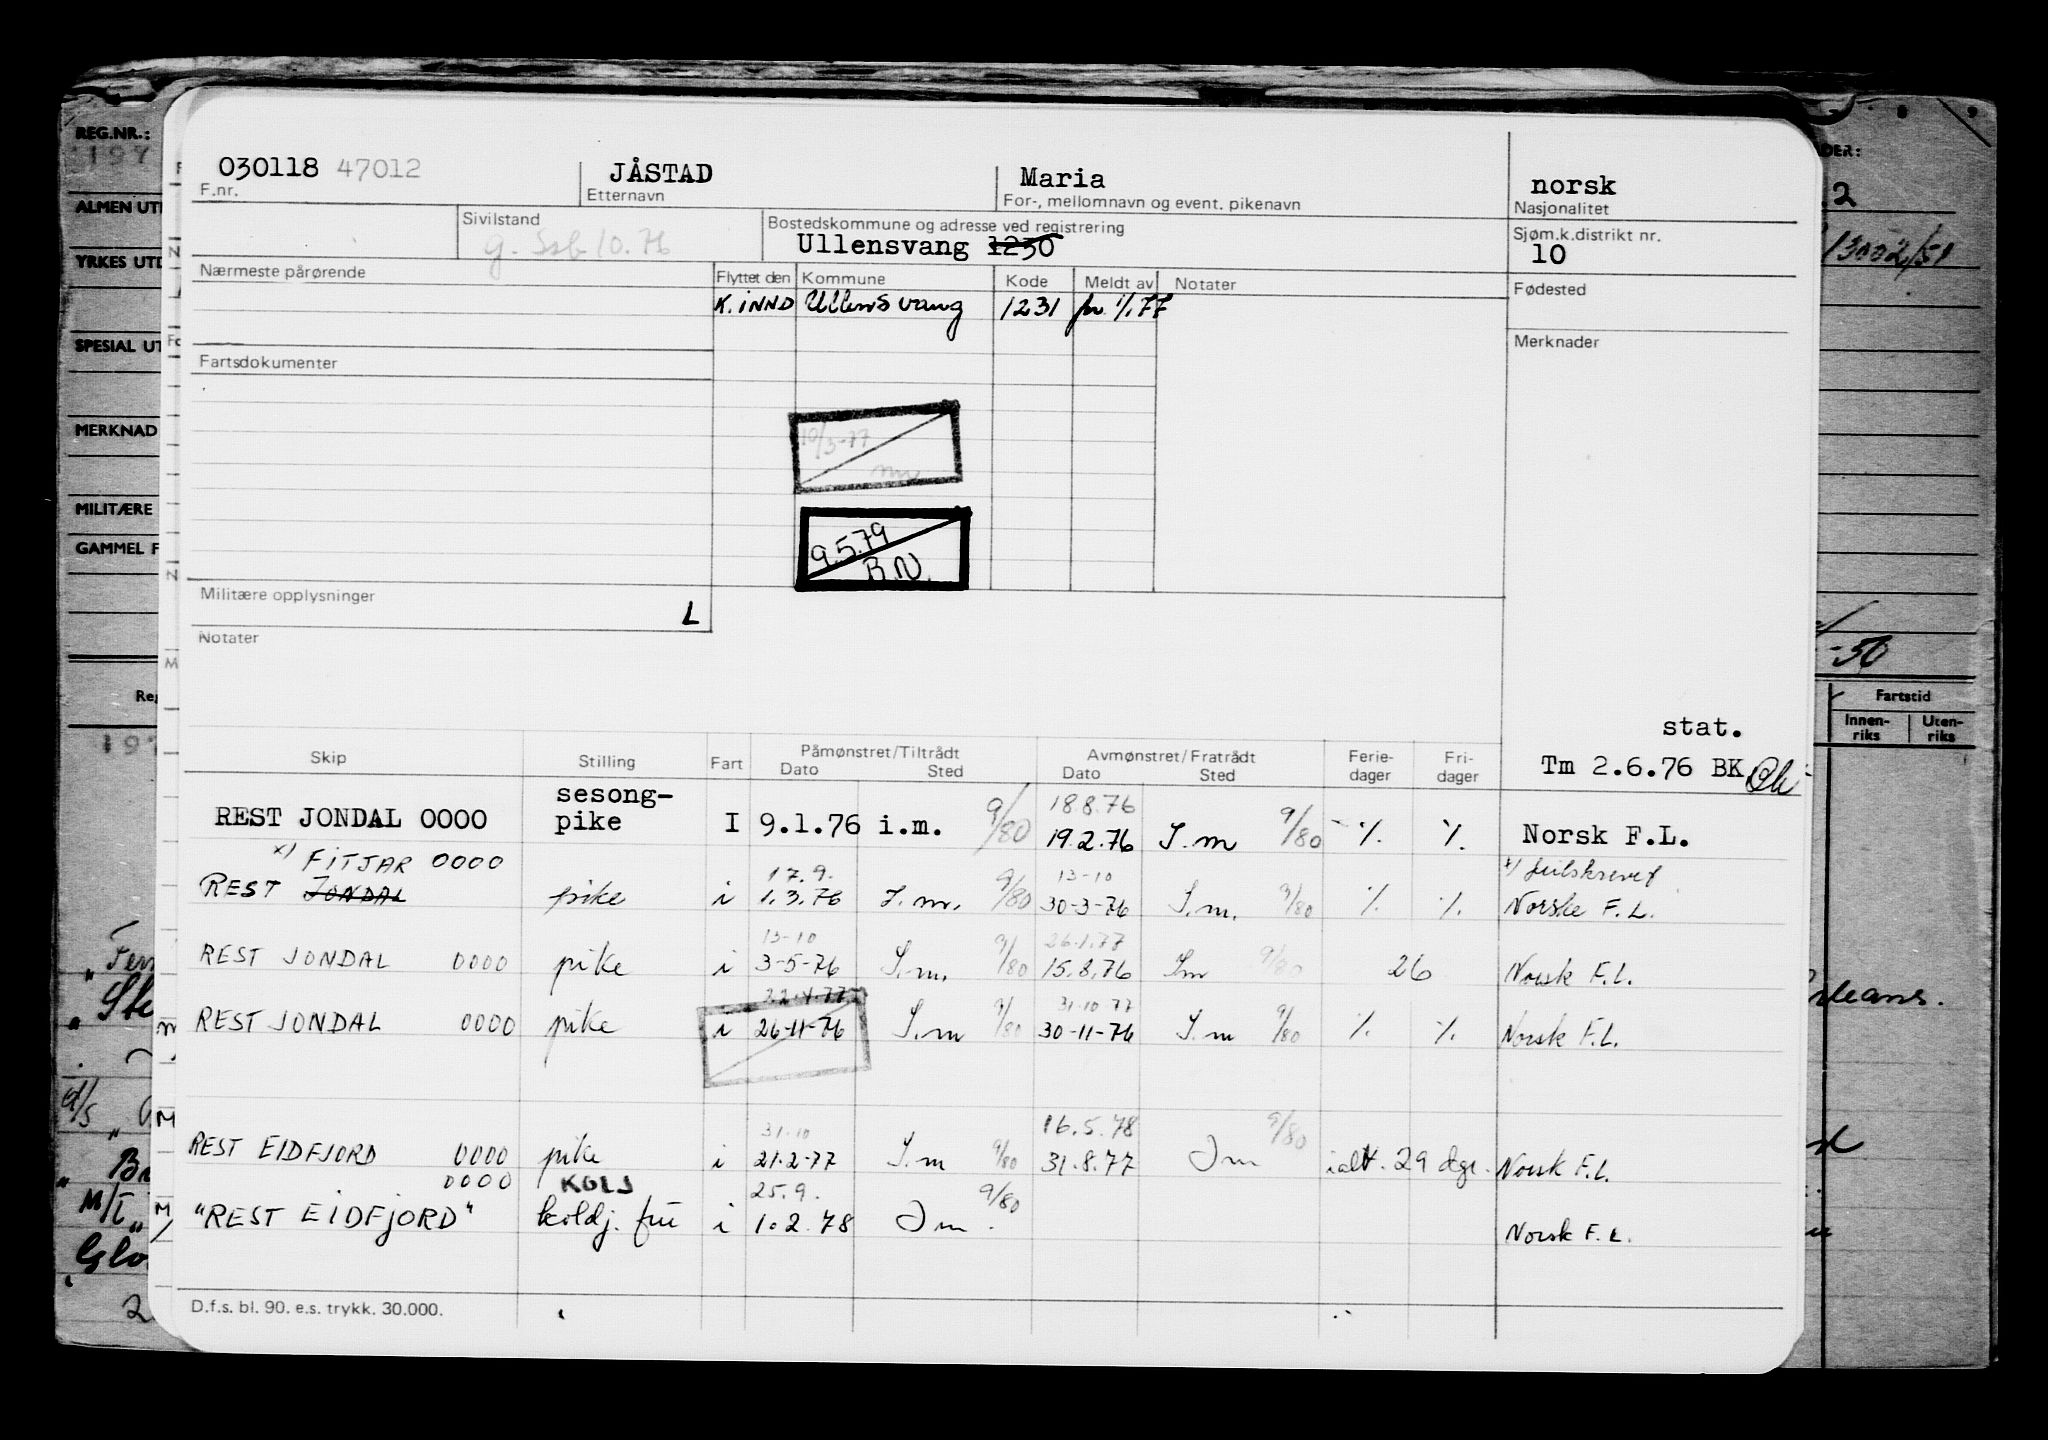 REG.NR.:
197
ALMEN UT
YRKES UTD
SPESIAL UT
MERKNAD
MILITÆRE
GAMMEL F
030118 47012
F.nr.
JÅSTAD
Etternavn
Maria
For-, mellomnavn og event. pikenavn
norsk
Nasjonalitet
Sivilstand
g. Ssb 10.76
Bostedskommune og adresse ved registrering
Ullensvang 1230
Sjøm.k.distrikt nr.
10
13002/51
Nærmeste pårørende
Flyttet den Kommune Kode Meldt av Notater
Fødested
K. INND Ullensvang 1231 pr. 1/1.77
Merknader
Fartsdokumenter
10/3-77
9.5.79
B.N.
Militære opplysninger
L
Notater
-50
Fartstid
Innen-riks Uten-riks
stat.
Tm 2.6.76 BK
Skip Stilling Fart Påmønstret/Tiltrådt Dato Sted Avmønstret/Fratrådt Dato Sted Ferie-dager Fri-dager
18.8.76
REST JONDAL 0000 sesong-pike I 9.1.76 i.m. 9/80 19.2.76 I.m 9/80 % % Norsk F.L.
x) FITJAR 0000 17.9. 13-10
REST JONDAL pike i 1.3.76 I.m. 9/80 30-3-76 I.m. 9/80 % % Norske F.L.
13-10 26.1.77
REST JONDAL 0000 pike i 3-5-76 I.m. 9/80 15.8.76 Im 9/80 26 Norsk F.L.
22.4.77 31.10.77
REST JONDAL 0000 pike i 26-11-76 I.m 9/80 30-11-76 I.m 9/80 % % Norsk F.L.
31.10 16.5.78
REST EIDFJORD 0000 pike i 21.2-77 I.m 9/80 31.8.77 Im 9/80 ialt. 29 dgr. Norsk F.L.
0000 KOLJ 25.9.
"REST EIDFJORD" koldj. frü i 1.2.78 Im. 9/80 Norsk F.L.
D.f.s. bl. 90. e.s. trykk. 30.000.